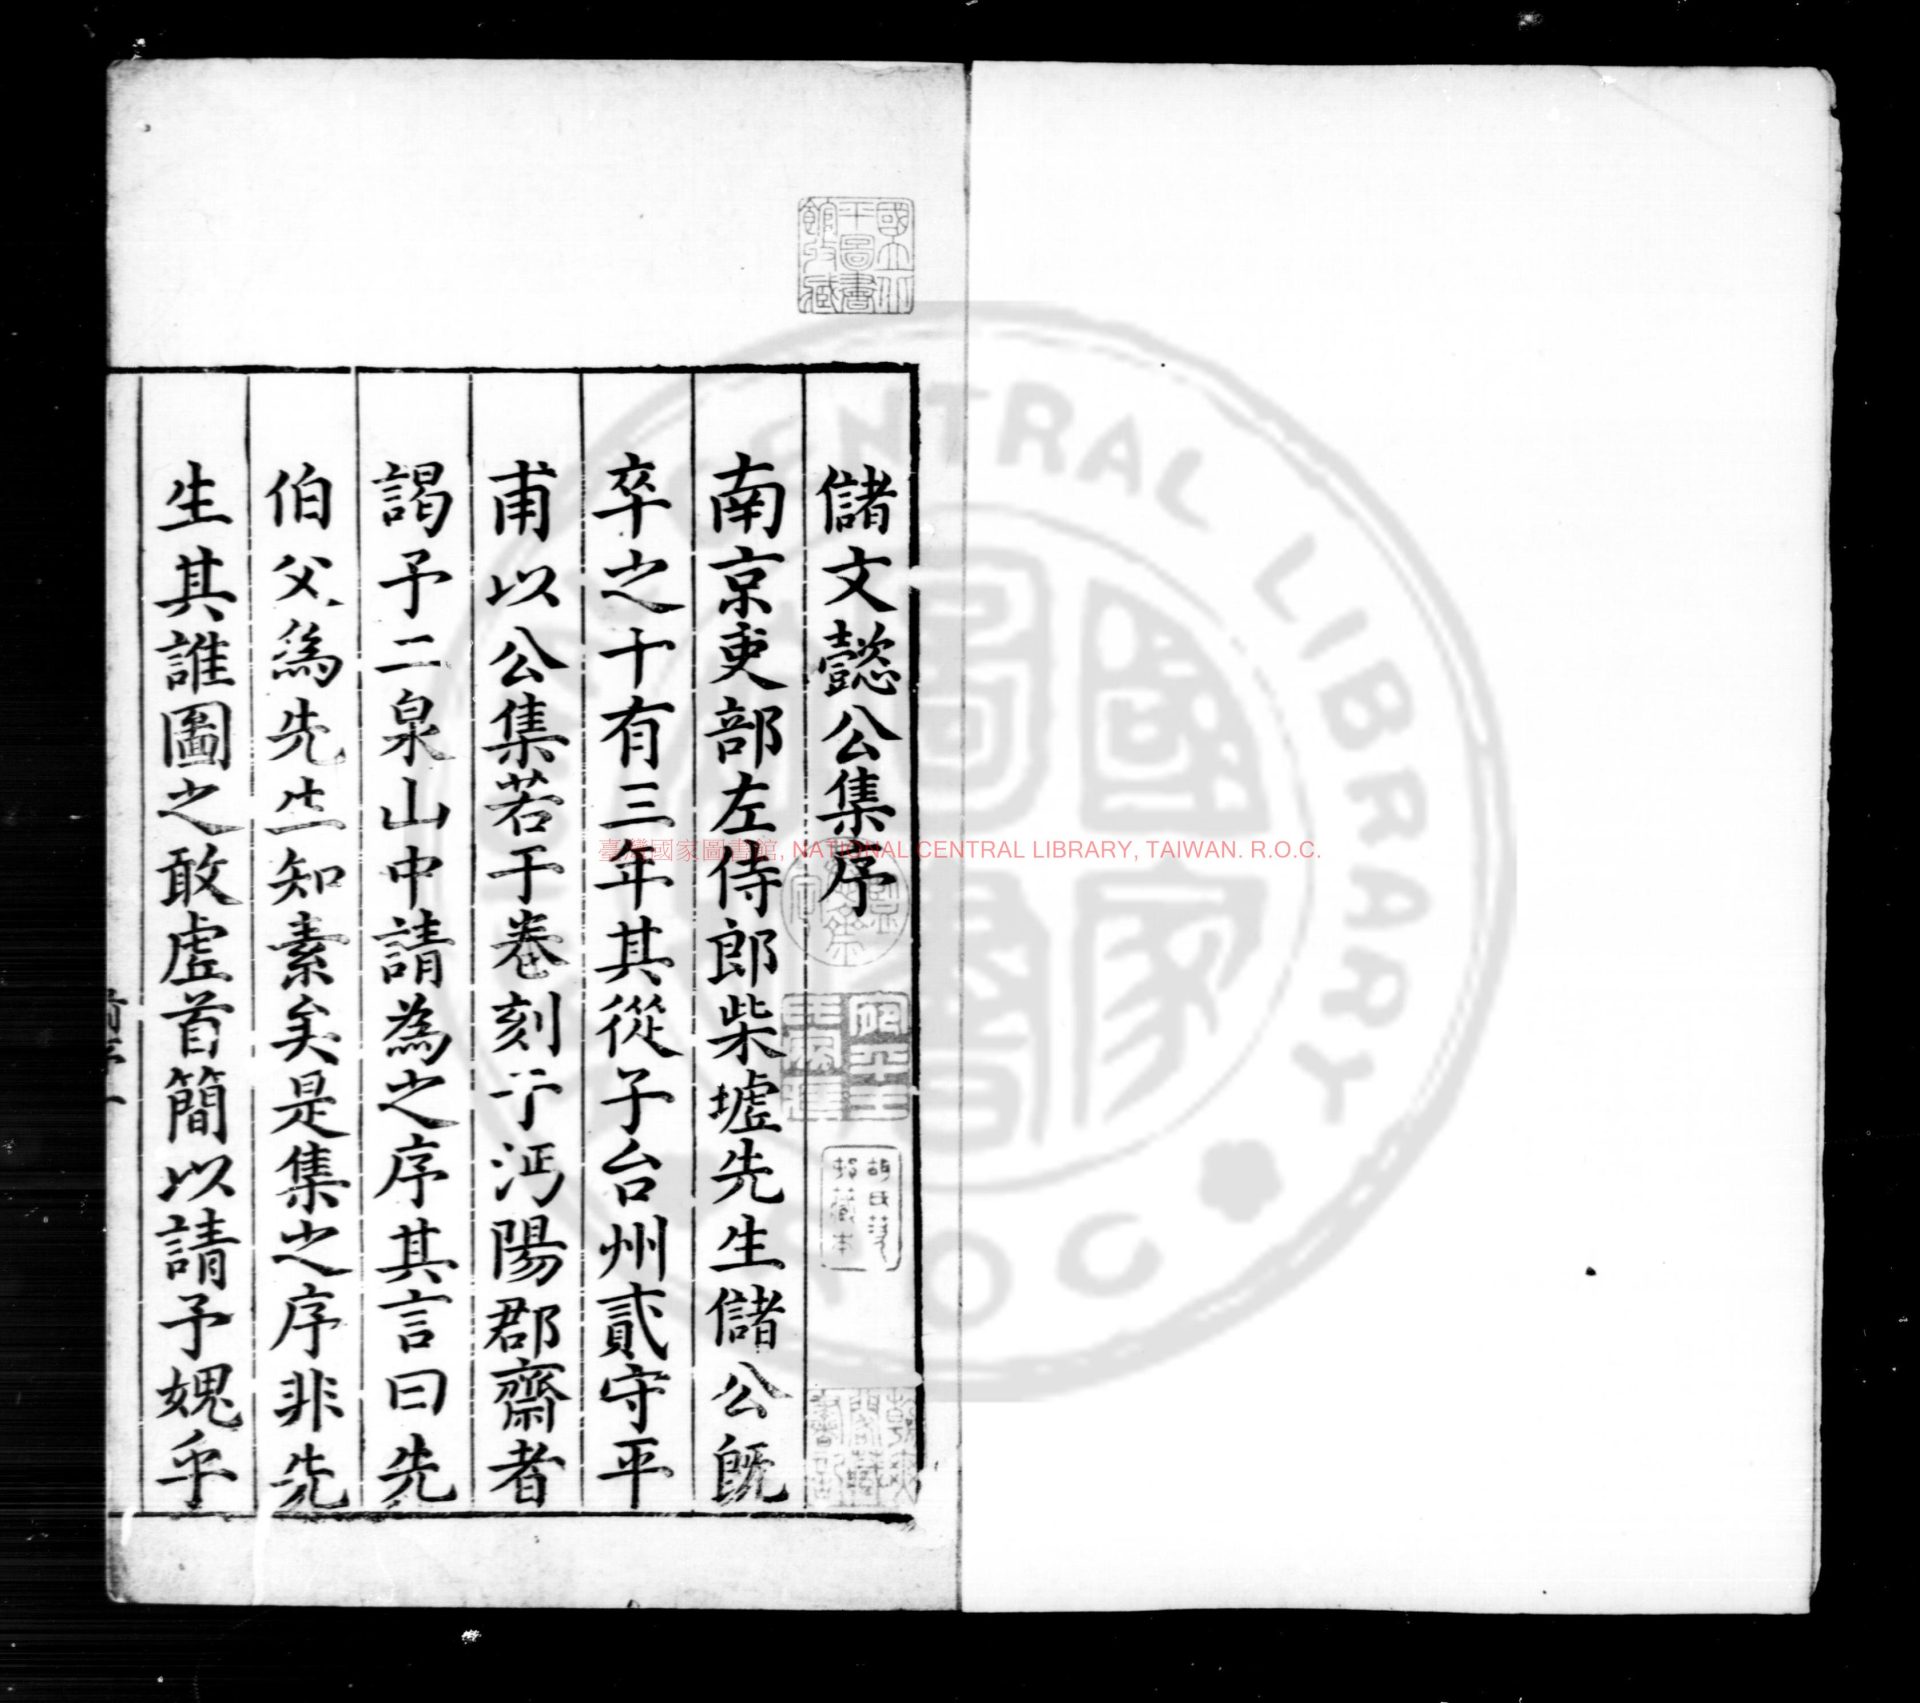 儲文懿公集序
南京吏部左侍郎柴墟先生儲公既
卒之十有三年其從子台州貳守平
甫以公集若干卷刻于沔陽郡齋者
謁予二泉山中請為之序其言曰先
伯父為先生知素矣是集之序非先
生其誰圖之敢虛首簡以請予媿乎
國立北平圖書館收藏
臺灣國家圖書館, NATIONAL CENTRAL LIBRARY, TAIWAN. R.O.C.
CENTRAL LIBRARY
國家圖書
R.O.C.